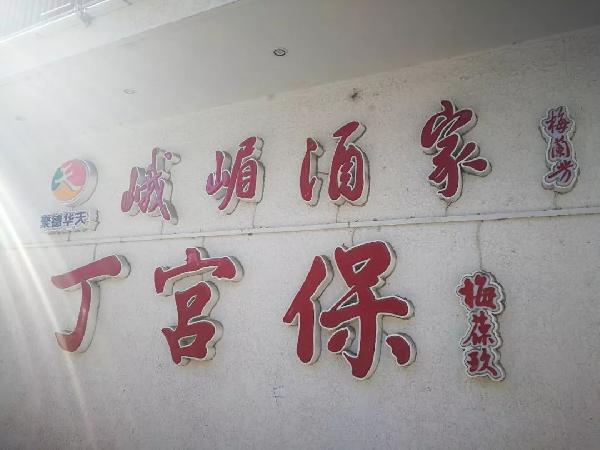 峨嵋酒家
梅兰芳
聚德华天
丁宫保
梅葆玖